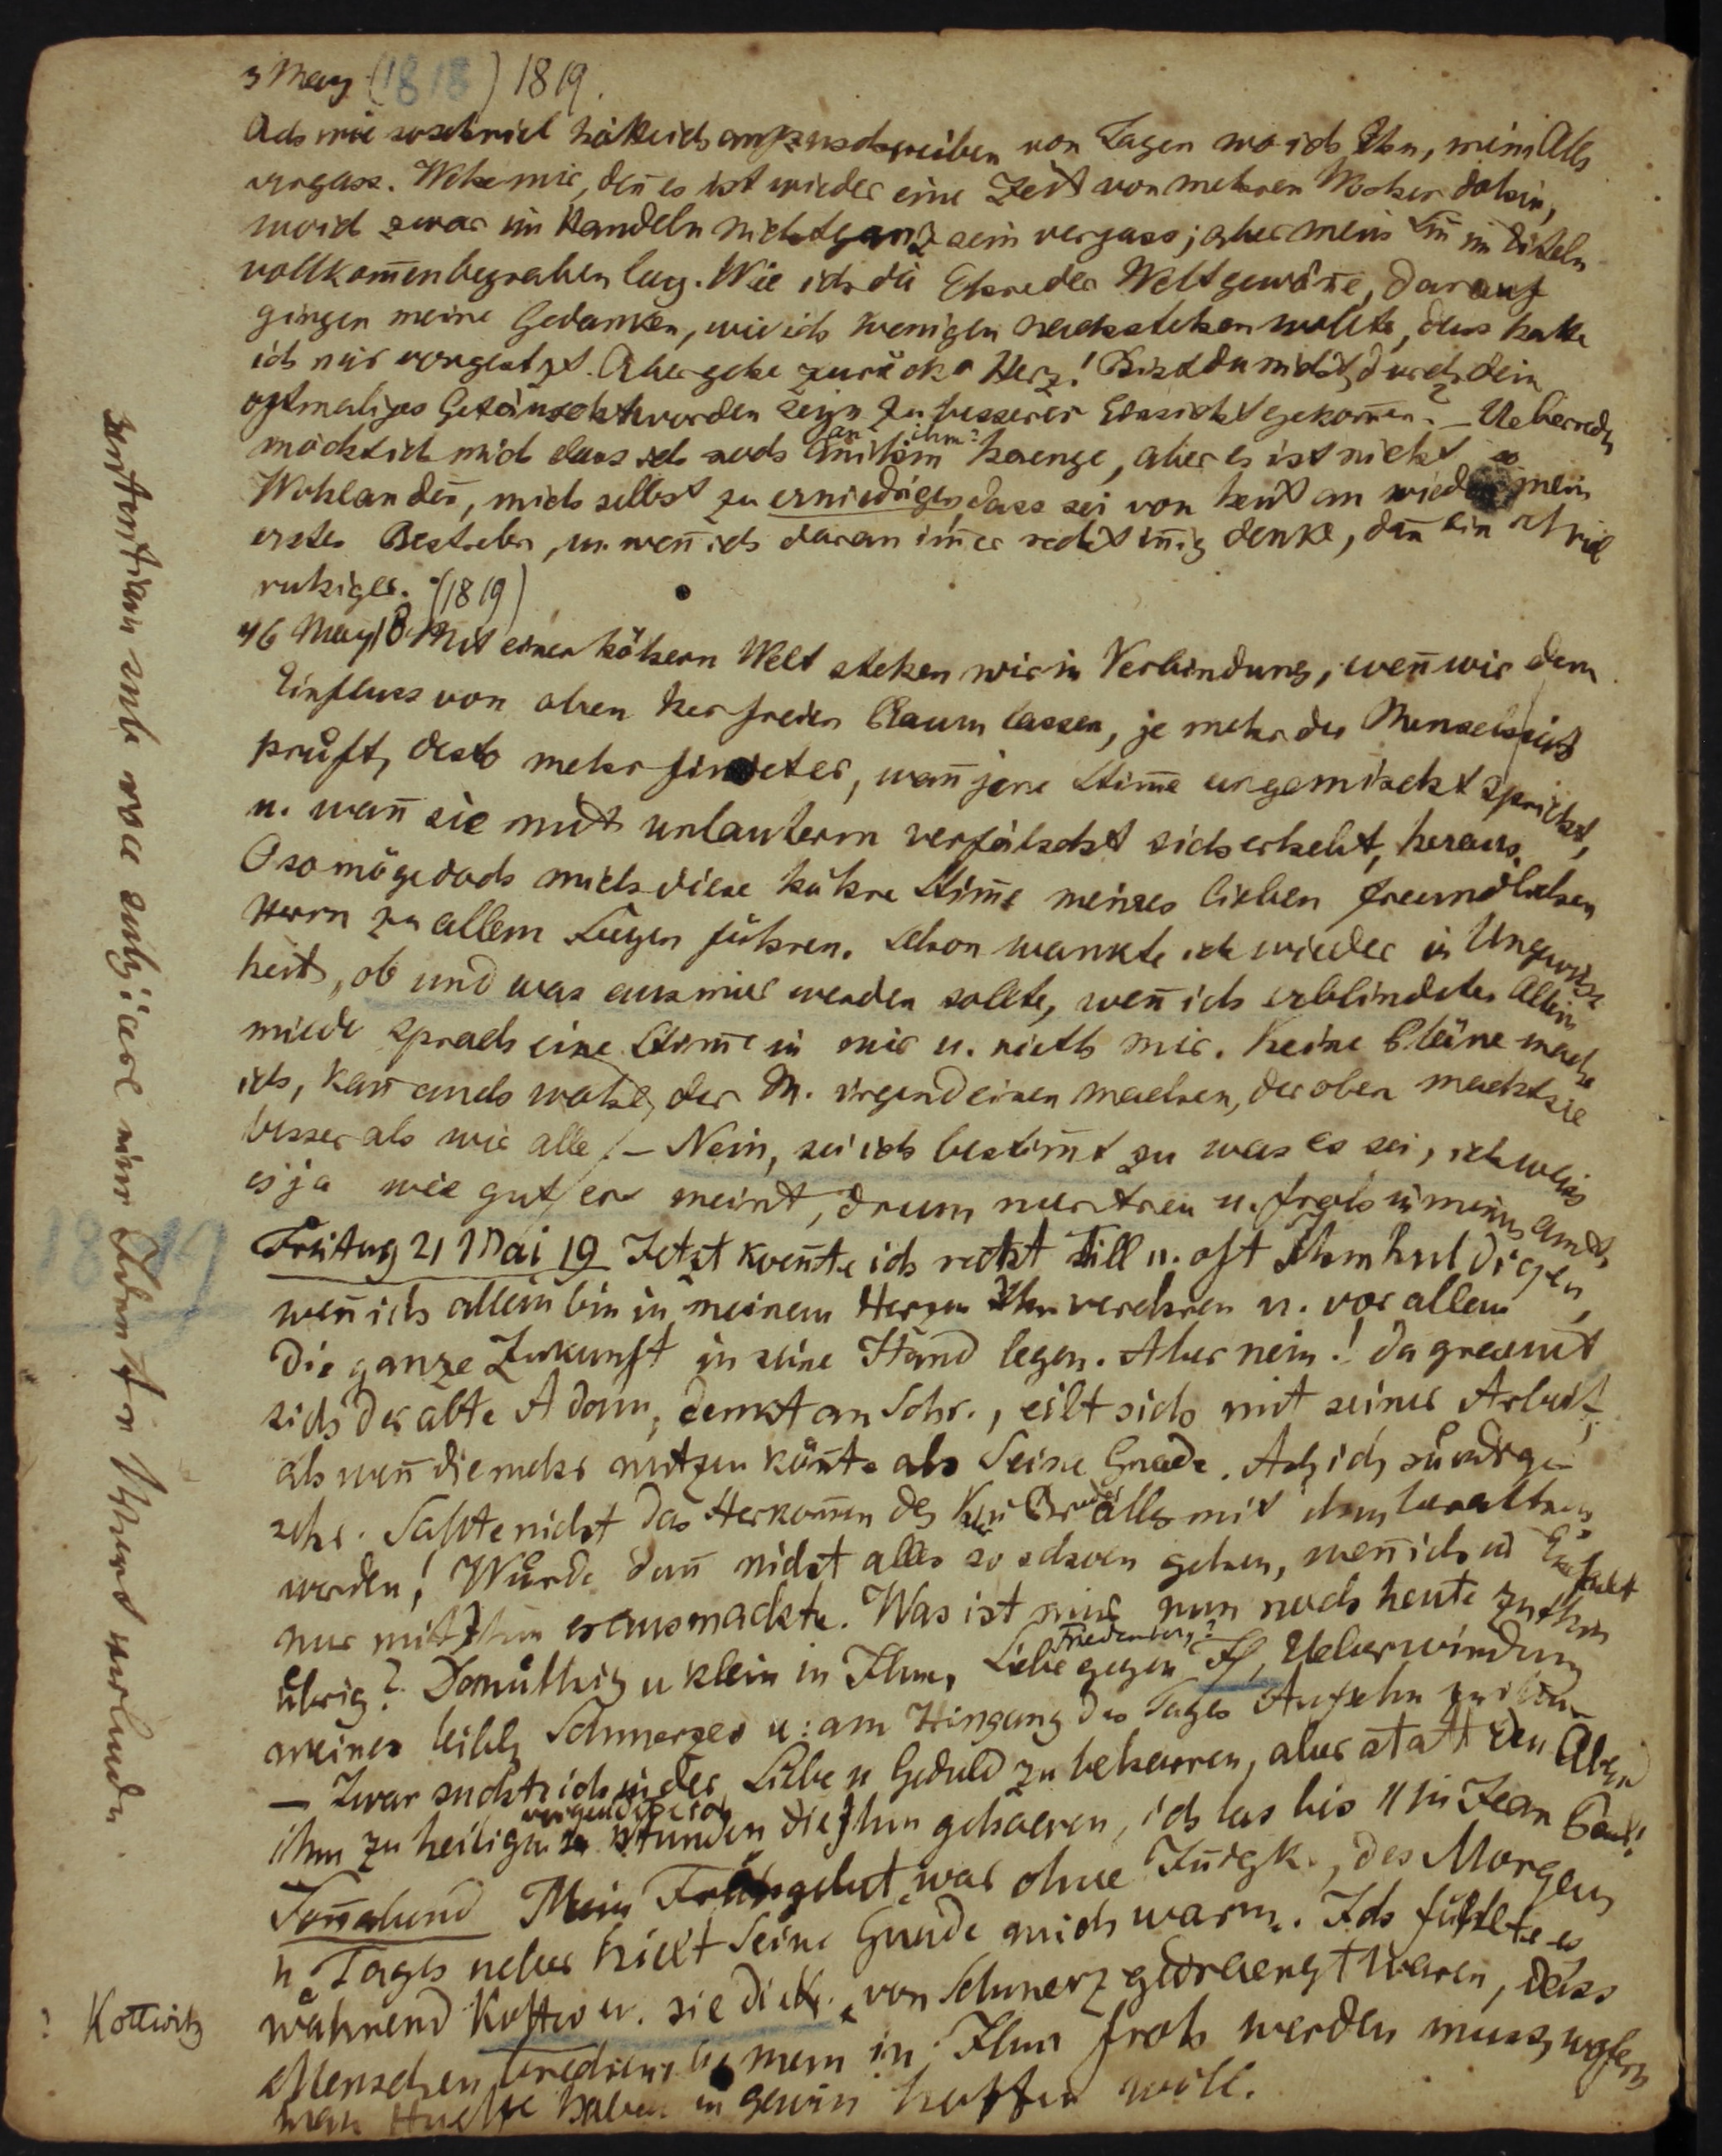 3 May (1818) 1819.
Ach wie so viel hätte ich aufzuschreiben von Tagen wo ich Ihn, mein Alles
vergass. Wehe mir, den̄ es ist wieder eine Zeit von mehren Wochen dahin,
wo ich zwar im Handeln nicht ganz sein vergass; aber mein Sin̄ im Eiteln
vollkom̄en begraben lag. Wie ich die Ehre der Welt gewön̄e, darauf
gingen meine Gedanken, wie ich wenigen nachstehen wollte, das hatte
ich mir vorgesetzt. Aber gehe zurück o Herz! Bist du nicht durch dein
oftmaliges Getäuschtworden seyn zu besserer Einsicht gekom̄en? – Ueberreden
möcht ich mich dass ich noch an ihm haenge, aber es ist nicht so
Wohlan den̄, mich selbst zu erniedrigen, dass sei von heut an wieder mein
erstes Bestreben, u. wen̄ ich daran im̄er recht in̄ig denke, dan̄ bin ich viel
ruhiger. (1819)
16 May 18 Mit einer höhern Welt stehen wir in Verbindung, wen̄ wir dem
Einfluss von oben her freien Raum lassen, je mehr der Mensch sich
prüft, desto mehr findet er, wan̄ jene Stim̄e ungemischt spricht,
u. wan̄ sie mit unlauterm verfälscht sich erhebt, heraus.
O so möge doch mich diese höhre Stim̄e meines lieben freundlichen
Herrn zu allem Guten führen. Schon wankte ich wieder in Ungewiss
heit, ob und was aus mir werden sollte, wen̄ ich erblindete. Allein
müde sprach eine Stim̄e in mir u. rieth mir. Keine Pläne mache
ich, kan̄ auch wohl der M. irgend einen machen, der oben macht sie
besser als wir alle! – Nein, sei ich bestim̄t zu was es sei, ich weiss
es ja wie gut er's meint, drum nur treu u. froh in meinem Amt,
Freitag 21 Mai 19 Jetzt koen̄te ich recht still u. oft Ihm huldigen,
wen̄ ich allein bin in meinem Herzen Ihn verehren u. vor allem
die ganze Zukunft in seine Hand legen. Aber nein! da graemt
sich der alte Adam, denkt an Schr., eilt sich mit seiner Arbeit,
als wen̄ die mehr nützen kön̄te als Seine Gnade. Ach ich sündige
sehr. Sollte nicht das Herkom̄en des Bruders alles mit ihm berathen
werden! Würde dan̄ nicht alles so schoen gehen, wen̄ ich in Einfalt
nur mit Ihm es ausmachte. Was ist mir nun noch heute zu thun
übrig? Demüthig u klein in Ihm, Liebe gegen Fr. Friedenberg? Ueberwindung
meines leibl. Schmerzes u: am Hingang des Tages Aufsehn zu ihm
– Zwar suchte ich in der Liebe u Geduld zu beharren, aber statt den Abend
ihm zu heiligen vergeudete ich Stunden die Ihm gehoeren, ich las bis 11 in Jean Paul!
Son̄abend Mein Frühgebet war ohne In̄igk., des Morgens
u Tages ueber hielt Seine Gnade mich warm. Ich fühlte es
während Kottw. u. sie die K. von Schmerz gedraengt waren, dass
Menschen man in Ihm froh werden muss, wofern
man Huelfe haben u Gewin̄ hoffen will.
18 19
? Kottwitz